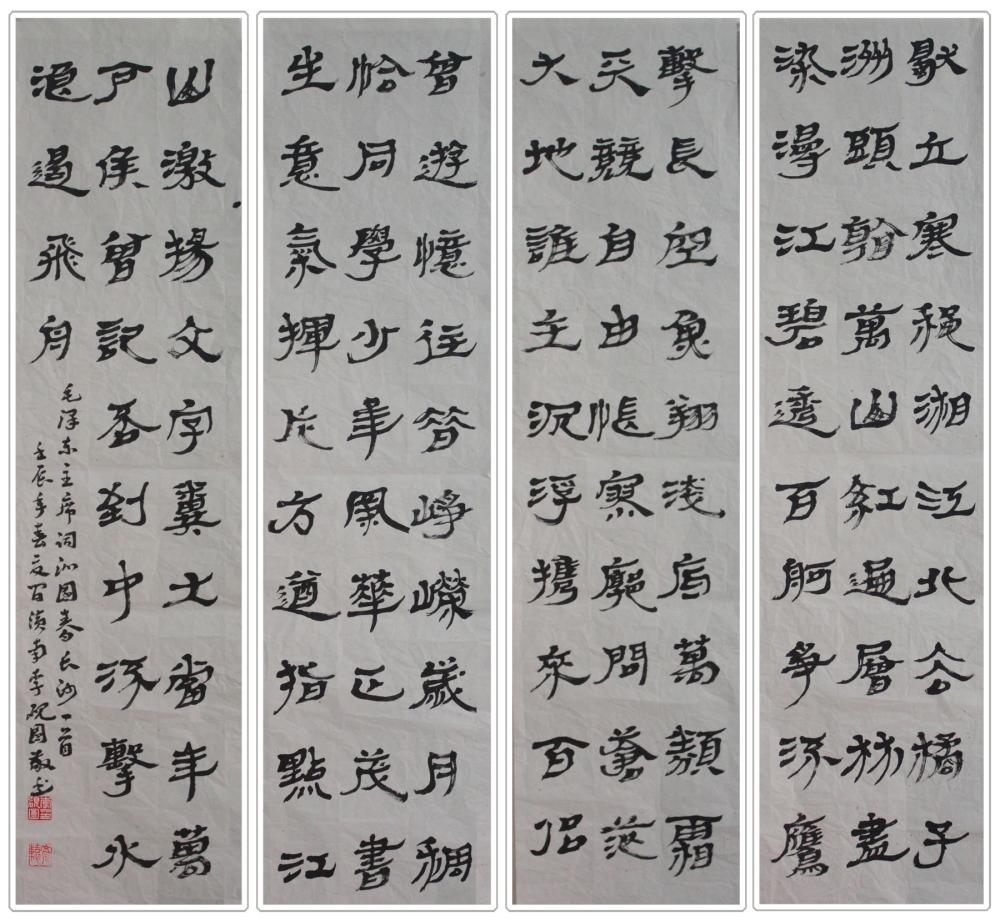 獨立寒穐湘江北去橘子
洲頭看萬山紅遍層林盡
染漫江碧透百舸爭流鷹
擊長空魚翔淺底萬類霜
天競自由悵寥廓問蒼茫
大地誰主沉浮攜來百侶
曾遊憶往昔崢嶸歲月稠
恰同學少年風華正茂書
生意氣揮斥方遒指點江
山激揚文字糞土當年萬
戶侯曾記否到中流擊水
浪遏飛舟
毛澤東主席詞沁園春長沙一首
壬辰年春滇南李硯國敬書